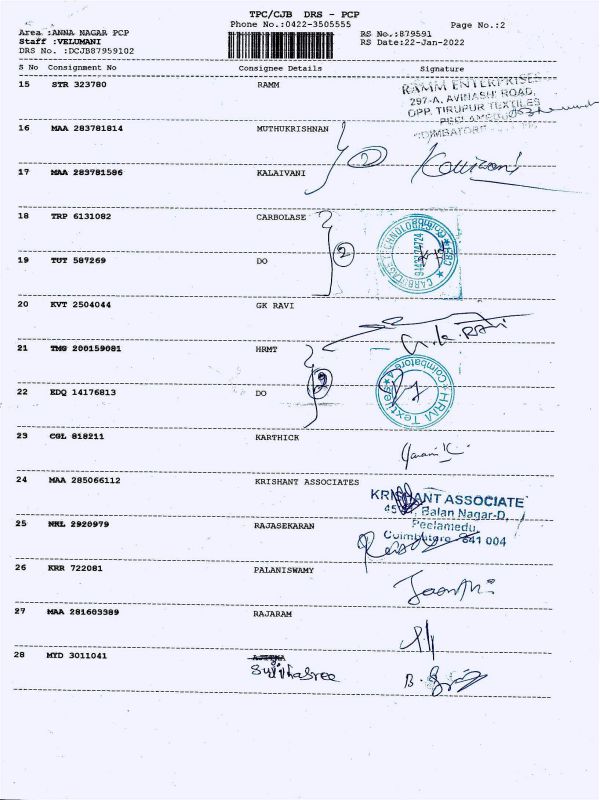 TPC/CJB DRS - PCP
Phone No.:0422-3505555
Page No.:2
Area :ANNA NAGAR PCP
Staff :VELUMANI
DRS No. :DCJB87959102
RS No.:879591
RS Date:22-Jan-2022
S No Consignment No Consignee Details Signature
15 STR 323780 RAMM
RAMM ENTERPRISES
297-A, AVINASHI ROAD,
OPP. TIRUPUR TEXTILES
PEELAMEDU
COIMBATORE
16 MAA 283781814 MUTHUKRISHNAN
2
17 MAA 283781586 KALAIVANI
18 TRP 6131082 CARBOLASE
2
19 TUT 587269 DO
20 KVT 2504044 GK RAVI
G.K. RAVI
21 TMG 200159081 HRMT
2
HRM Textiles
Coimbatore
22 EDQ 14176813 DO
23 CGL 818211 KARTHICK
24 MAA 285066112 KRISHANT ASSOCIATES
KRISHANT ASSOCIATE
Balan Nagar-D,
Peelamedu,
Coimbatore 641 004
25 NKL 2920979 RAJASEKARAN
26 KRR 722081 PALANISWAMY
27 MAA 281603389 RAJARAM
28 MYD 3011041
Sujithasree